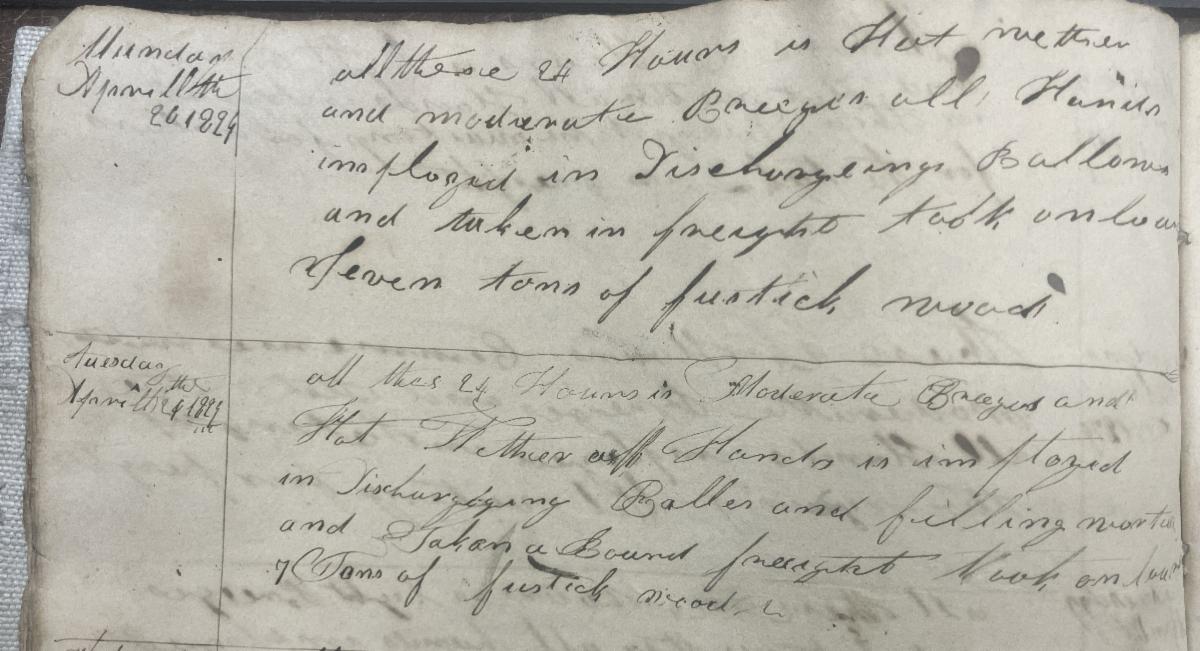 Munday
Aprill th
26 1824
all these 24 Hours is Hot wether
and moderate Breezes all Hands
imployed in Dischargeing Ballows
and taken in freight took on boa
Seven tons of fustick wood
Tuesday
Aprill th 1824
all thes 24 Hours is Moderate Breezes and
Hot Wether all Hands is imployed
in Discharging Balles and filling worter
and Taken a Bound freight took on boar
7 Tons of fustick wood